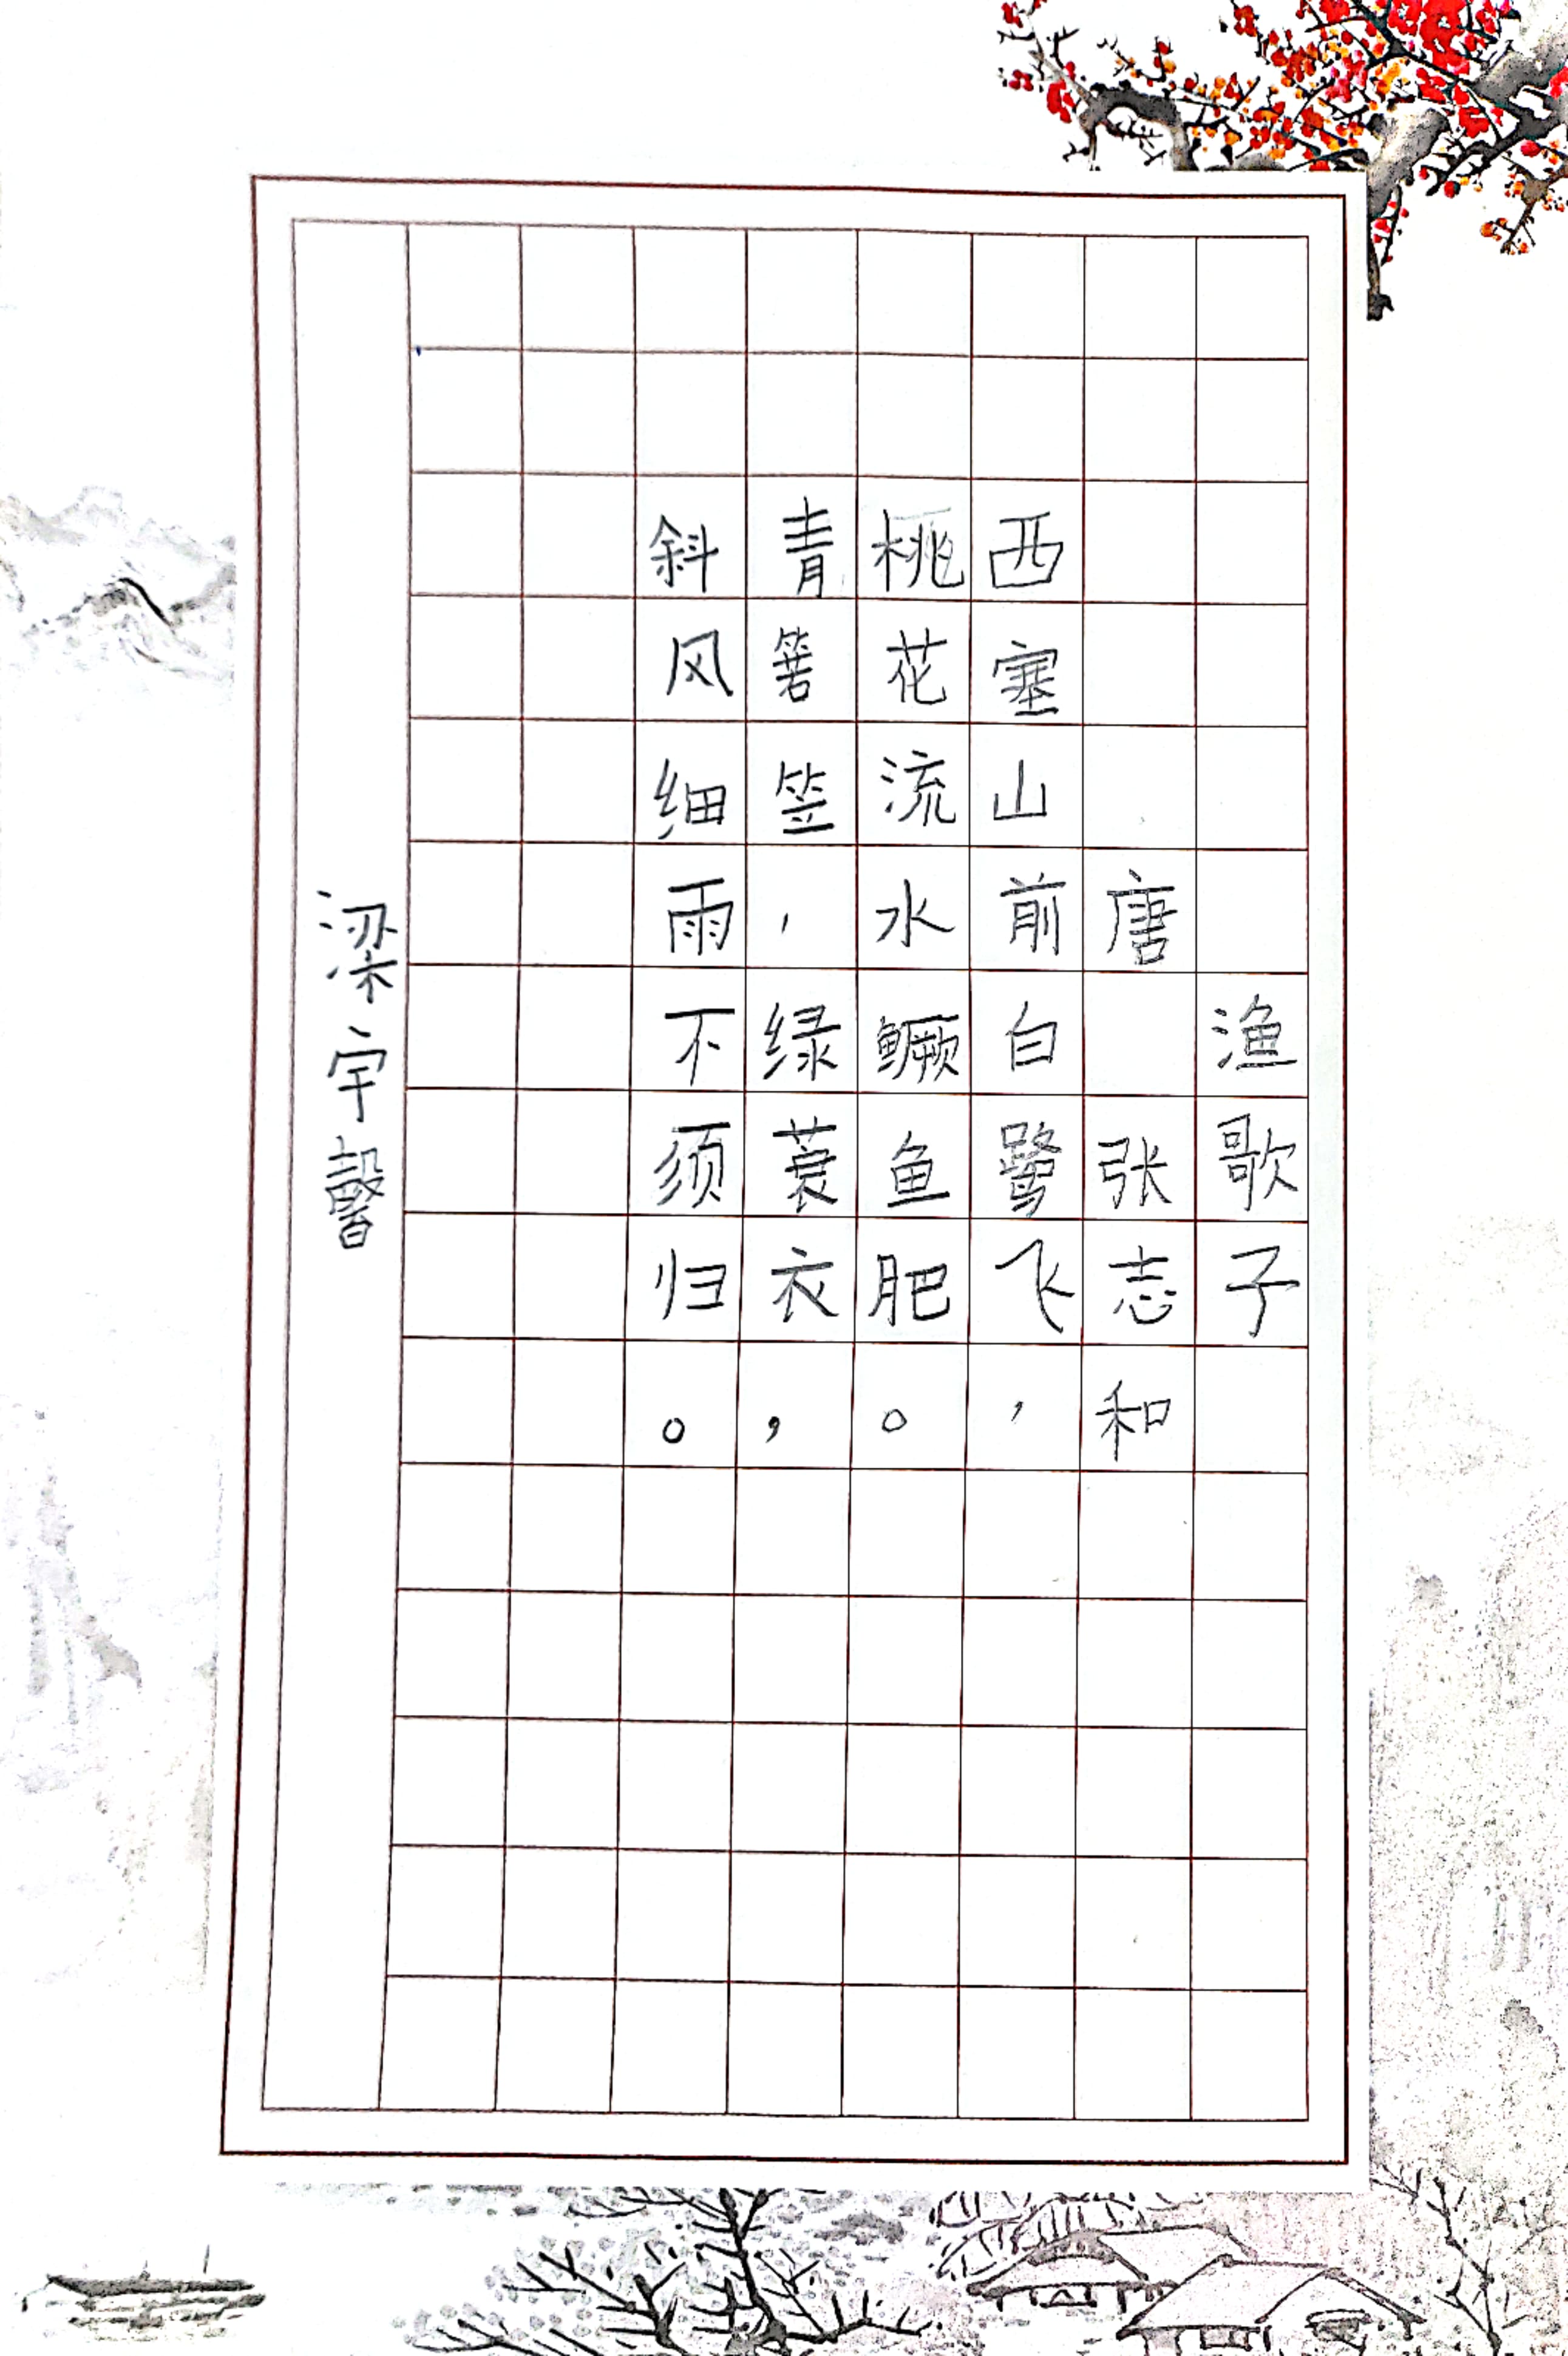 渔歌子
唐 张志和
西塞山前白鹭飞，
桃花流水鳜鱼肥。
青箬笠，绿蓑衣，
斜风细雨不须归。
梁宇馨